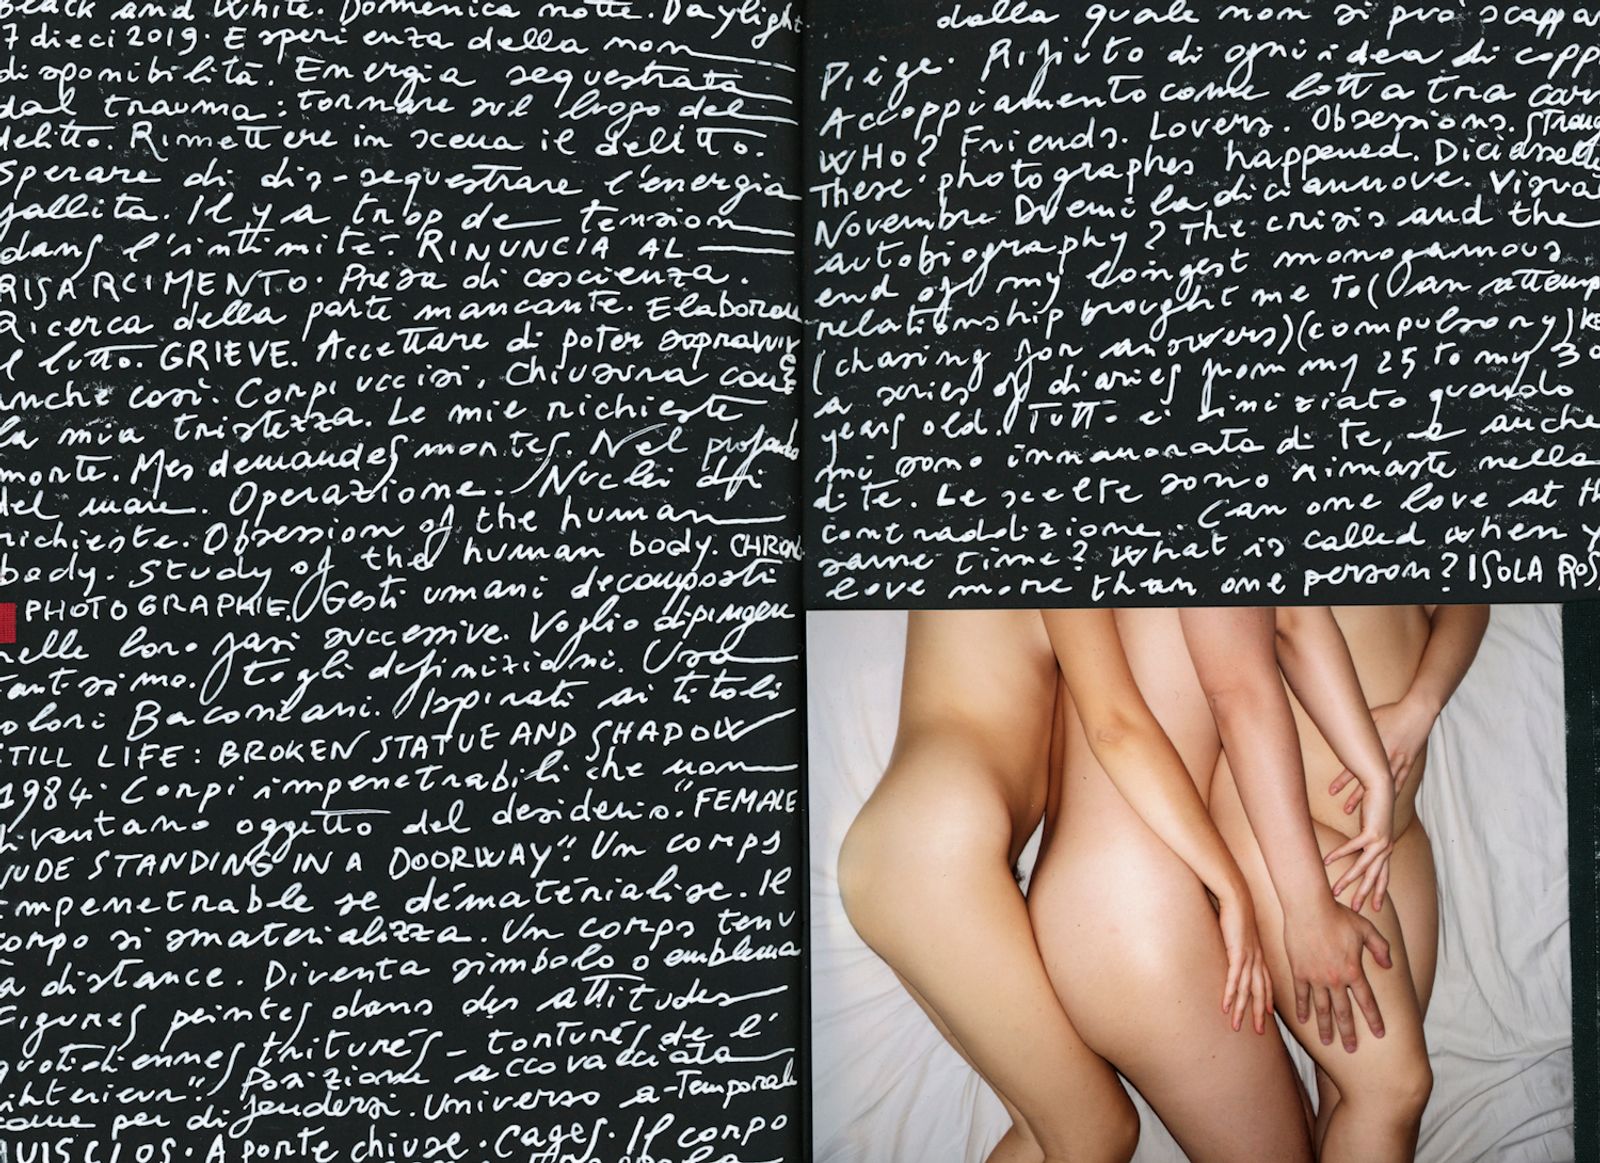 Black and White. Domenica notte. Daylight
7 dieci 2019. Esperienza della non
disponibilità. Energia sequestrata
dal trauma: tornare sul luogo del
delitto. Rimettere in scena il delitto.
Sperare di dis-sequestrare l'energia
fallita. Il y a trop de tension
dans l'intimité. RINUNCIA AL
RISARCIMENTO. Presa di coscienza.
Ricerca della parte mancante. Elaborare
il lutto. GRIEVE. Accettare di poter
anche così. Corpi uccisi, chiusura come
la mia tristezza. Le mie richieste
morte. Mes demandes mortes. Nel profondo
del mare. Operazione. Nuclei di
richieste. Obsession of the human
body. Study of the human body. CHRONO
PHOTOGRAPHIE. Gesti umani decomposti
nelle loro fasi successive. Voglio dipingere
tantissimo. Togli definizioni. Uso
colori Baconiani. Ispirati ai titoli
STILL LIFE: BROKEN STATUE AND SHADOW
1984. Corpi impenetrabili che non
diventano oggetto del desiderio. "FEMALE
NUDE STANDING IN A DOORWAY". Un corps
impenetrable se dématérialise. Il
corpo si smaterializza. Un corps tenu
à distance. Diventa simbolo o emblema
Figures peintes dans des attitudes
quotidiennes triturés - torturés de l'
intérieur". Posizione accovacciata
come per difendersi. Universo a-temporale
HUIS CLOS. A porte chiuse. Cages. Il corpo
dalla quale non si può scappare
Piège. Rifiuto di ogni idea di coppia
Accoppiamento come lotta tra
WHO? Friends. Lovers. Obsessions.
These photographes happened. Diciassette
Novembre Duemiladiciannove. Visual
autobiography? The crisis and the
end of my longest monogamous
relationship brought me to (an attempt
(chasing for answers)(compulsory)
a series of diaries from my 25 to my 30
years old. Tutto è iniziato quando
mi sono innamorata di te, e anche
di te. Le scelte sono rimaste nella
contraddizione. Can one love at the
same time? What is called when you
love more than one person? ISOLA